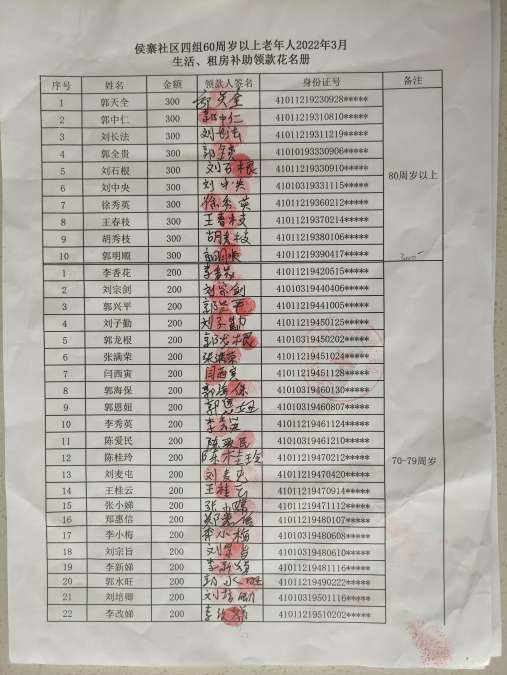 侯寨社区四组60周岁以上老年人2022年3月
生活、租房补助领款花名册
序号 姓名 金额 领款人签名 身份证号 备注
1 郭天全 300 郭天全 41011219230928*****
2 郭中仁 300 郭中仁 41011219310810*****
3 刘长法 300 刘长法 41011219311219*****
4 郭全贵 300 41010193330906*****
5 刘石根 300 刘石根 41011219330910*****
6 刘中央 300 刘中央 41010319331115*****
7 徐秀英 300 徐秀英 41011219360212*****
8 王春枝 300 王春枝 41011219370214*****
9 胡秀枝 300 胡秀枝 41011219380106*****
10 郭明顺 300 郭明顺 41011219390417*****
80周岁以上
1 李香花 200 李香花 41011219420515*****
2 刘宗剑 200 刘宗剑 41010319440406*****
3 郭兴平 200 郭兴平 41011219441005*****
4 刘子勤 200 刘子勤 41011219450125*****
5 郭龙根 200 郭龙根 41010319450202*****
6 张满荣 200 张满荣 41011219451024*****
7 闫西寅 200 闫西寅 41011219451128*****
8 郭海保 200 郭海保 41010319460130*****
9 郭恩妞 200 郭恩妞 41010319460807*****
10 李秀英 200 李秀英 41011219461124*****
11 陈爱民 200 陈爱民 41010319461210*****
12 陈桂玲 200 陈桂玲 41011219470212*****
13 刘麦屯 200 刘麦屯 41011219470420*****
14 王桂云 200 王桂云 41011219470914*****
15 张小娣 200 张小娣 41011219471112*****
16 郑惠信 200 郑惠信 41011219480107*****
17 李小梅 200 李小梅 41010319480608*****
18 刘宗旨 200 刘宗旨 41010319480610*****
19 李新娣 200 李新娣 41011219481116*****
20 郭水旺 200 郭水旺 41011219490222*****
21 刘培卿 200 刘培卿 41010319501116*****
22 李改娣 200 李改娣 41011219510202*****
70-79周岁